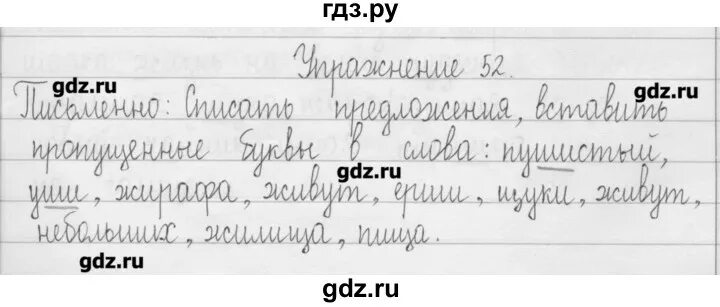 гдз.ру
Упражнение 52.
gdz.ru
gdz.ru
Письменно: Списать предложения, вставить
пропущенные буквы в слова: пушистый,
gdz.ru
уши, жирафа, живут, ерши, щуки, живут,
небольших, жилища, пища.
gdz.ru
gdz.ru